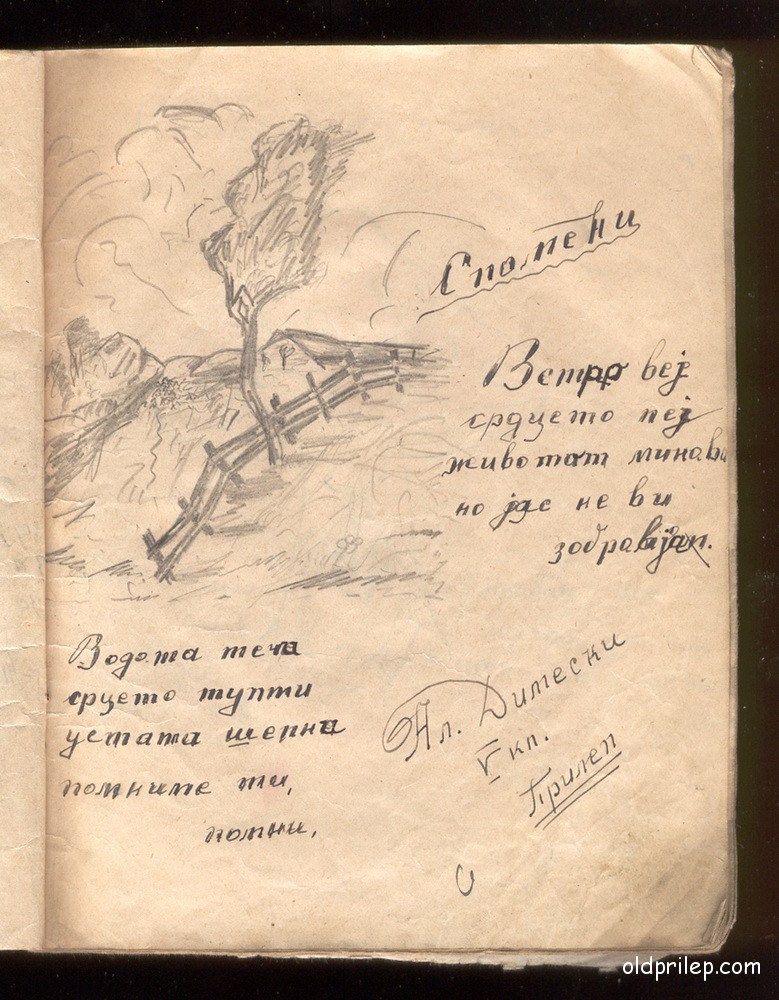 Спомени
Ветрр веј
срдцето пеј
животот минава
но јас не ви
зоборавјап.
Водота теча
срцето тупти
устата шепна
помниме ти,
помни,
Ал. Димески
V кл.
Прилеп
oldprilep.com